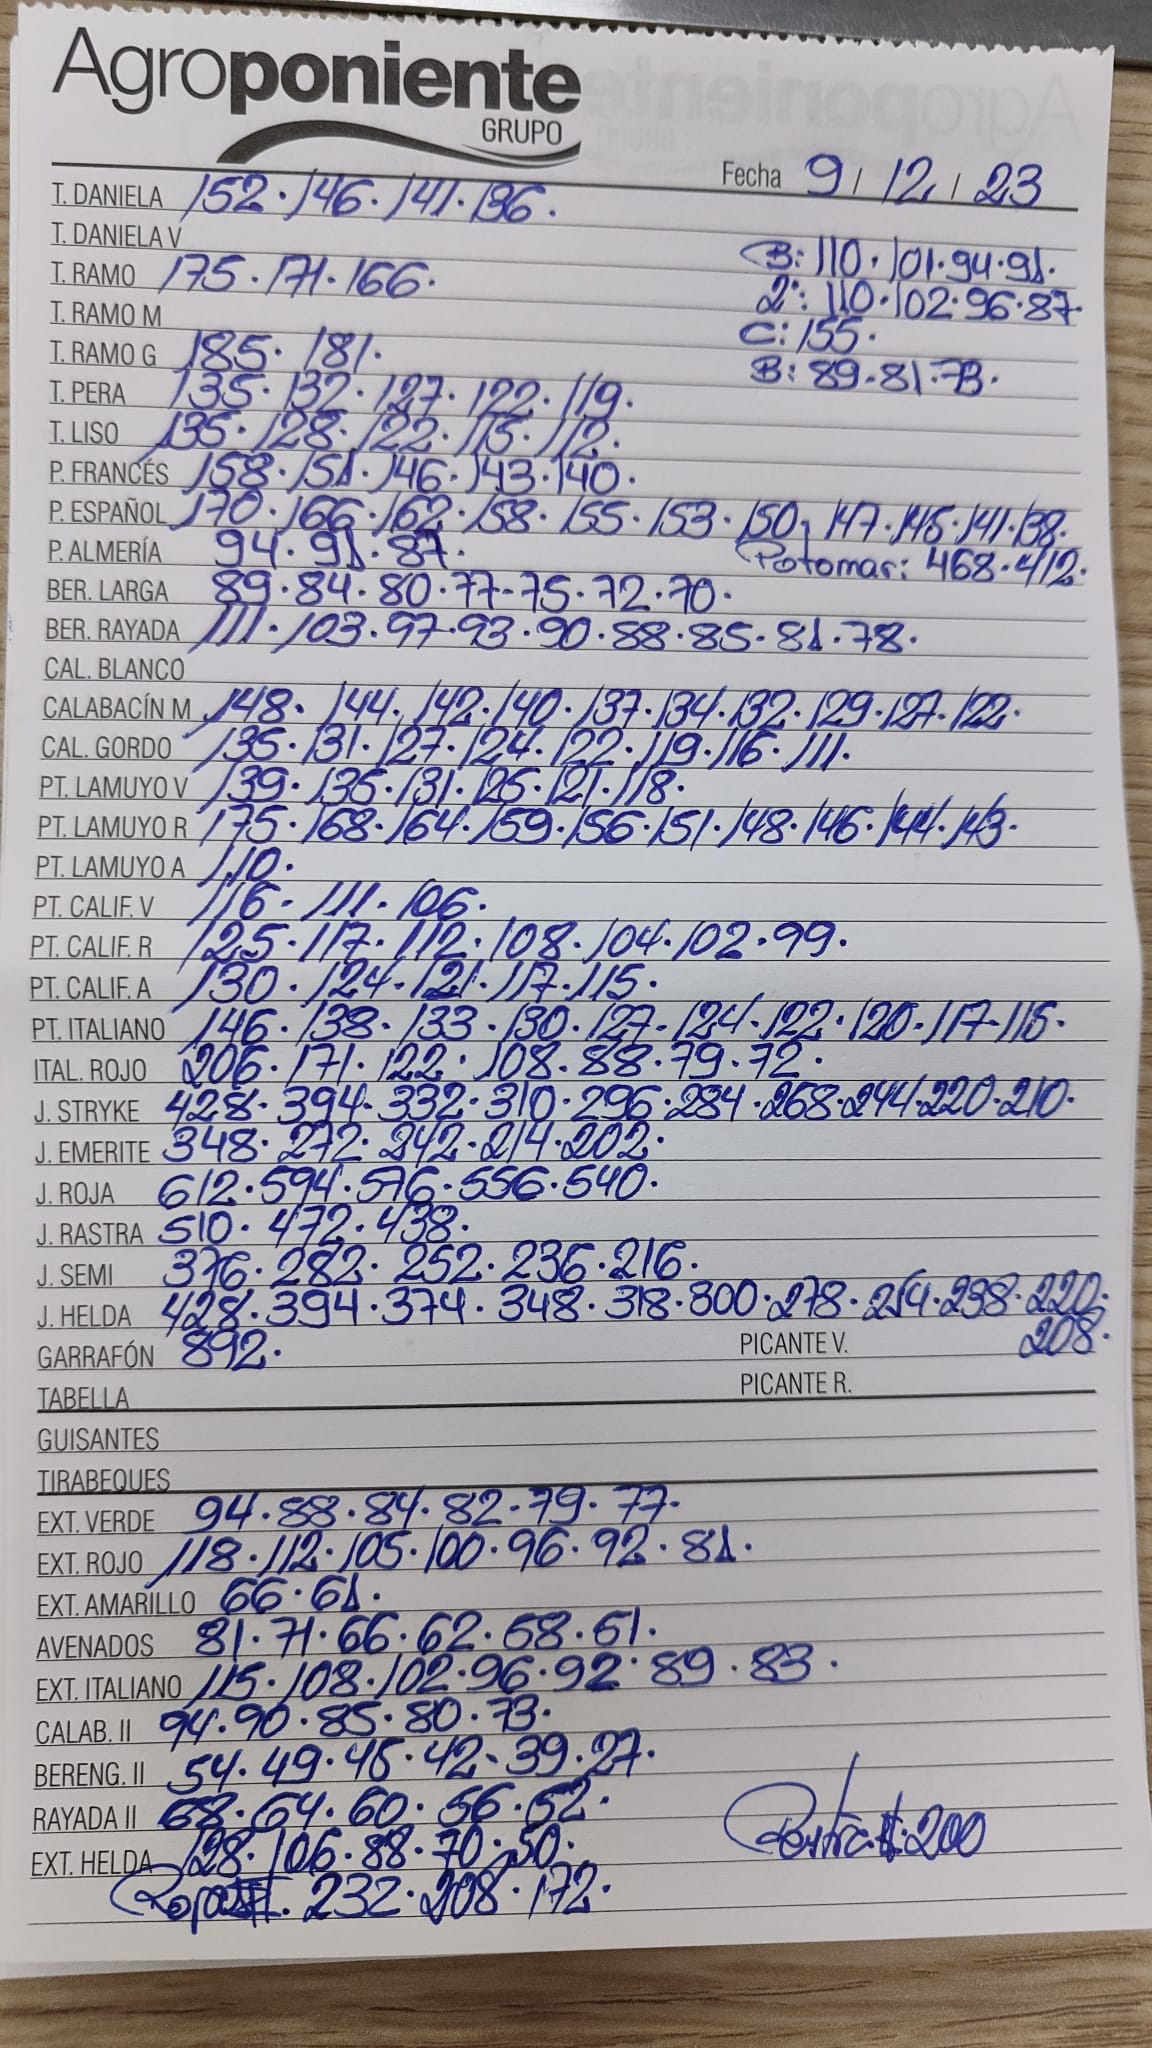 Agroponiente
GRUPO
Fecha 9/12/23
T. DANIELA 152·146·141·136.
T. DANIELA V B: 110·101·94·91.
T. RAMO 175·171·166. 2ª: 110·102·96·87.
T. RAMO M C: 155.
T. RAMO G 185·181. B: 89·81·73.
T. PERA 135·132·127·122·119.
T. LISO 135·128·122·115·112.
P. FRANCÉS 158·151·146·143·140.
P. ESPAÑOL 170·166·162·158·155·153·150·147·145·141·138.
P. ALMERÍA 94·91·87. Potomar: 468·412.
BER. LARGA 89·84·80·77·75·72·70.
BER. RAYADA 111·103·97·93·90·88·85·81·78.
CAL. BLANCO
CALABACÍN M 148·144·142·140·137·134·132·129·127·122.
CAL. GORDO 135·131·127·124·122·119·116·111.
PT. LAMUYO V 139·135·131·125·121·118.
PT. LAMUYO R 175·168·164·159·156·151·148·146·144·143.
PT. LAMUYO A 110.
PT. CALIF. V 116·111·106.
PT. CALIF. R 125·117·112·108·104·102·99.
PT. CALIF. A 130·124·121·117·115.
PT. ITALIANO 146·138·133·130·127·124·122·120·117·115.
ITAL. ROJO 206·171·122·108·88·79·72.
J. STRYKE 428·394·332·310·296·284·268·244·220·210.
J. EMERITE 348·272·242·214·202.
J. ROJA 612·594·576·556·540.
J. RASTRA 510·472·438.
J. SEMI 376·282·252·236·216.
J. HELDA 428·394·374·348·318·300·278·254·238·220·
GARRAFÓN 892. PICANTE V. 208.
TABELLA PICANTE R.
GUISANTES
TIRABEQUES
EXT. VERDE 94·88·84·82·79·77.
EXT. ROJO 118·112·105·100·96·92·81.
EXT. AMARILLO 66·61.
AVENADOS 81·71·66·62·58·51.
EXT. ITALIANO 115·108·102·96·92·89·83.
CALAB. II 94·90·85·80·73.
BERENG. II 54·49·45·42·39·27.
RAYADA II 68·64·60·56·52.
EXT. HELDA 128·106·88·70·50. 200
Roja II. 232·208·172.